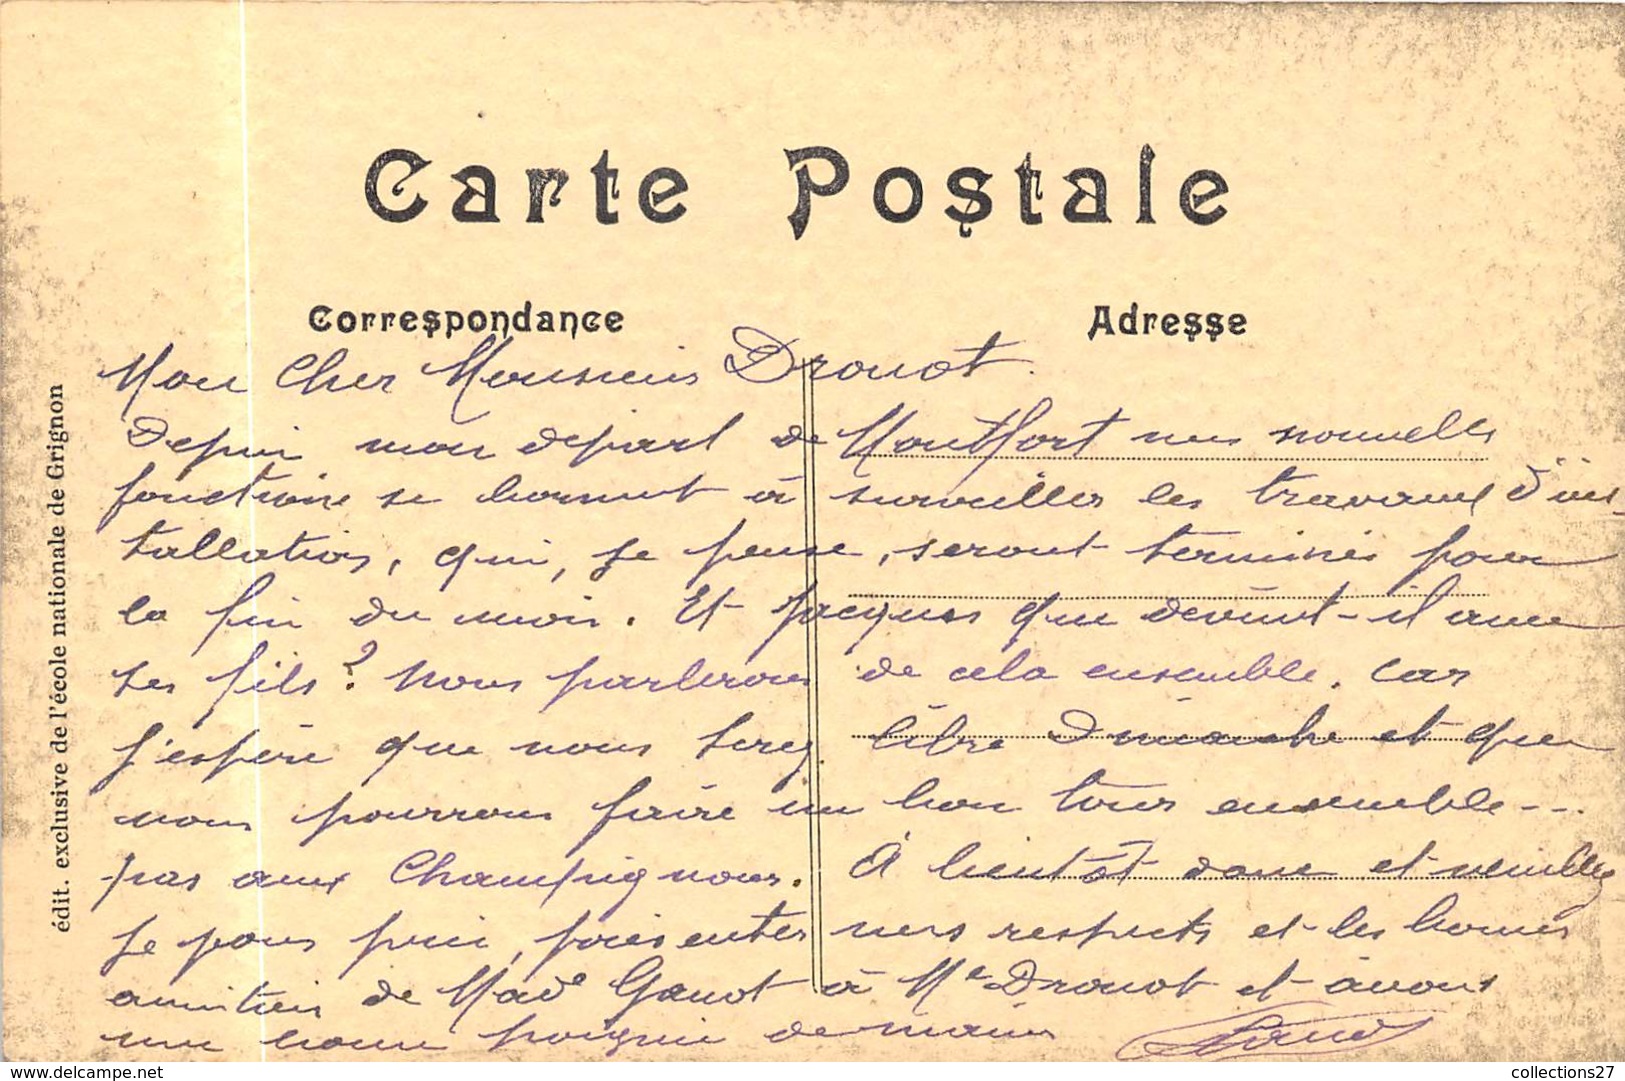 Carte Postale
Correspondance
Adresse
édit. exclusive de l'école nationale de Grignon
Mon Cher Monsieur Drouot.
Depuis mon départ de Montfort mes nouvelles
fonctions se bornent à surveiller les travaux d'ins-
tallation, qui, je pense, seront terminés pour
la fin du mois. Et Jacques que devient-il avec
ses fils? Nous parlerons de cela ensemble. Car
j'espère que vous serez libre Dimanche et que
nous pourrons faire un bon tour ensemble...
pas aux Champignons. À bientôt donc et veuillez
je vous prie, présenter mes respects et les bonnes
amitiés de Made Ganot à Me Drouot et à vous
une bonne poignée de mains
collections27